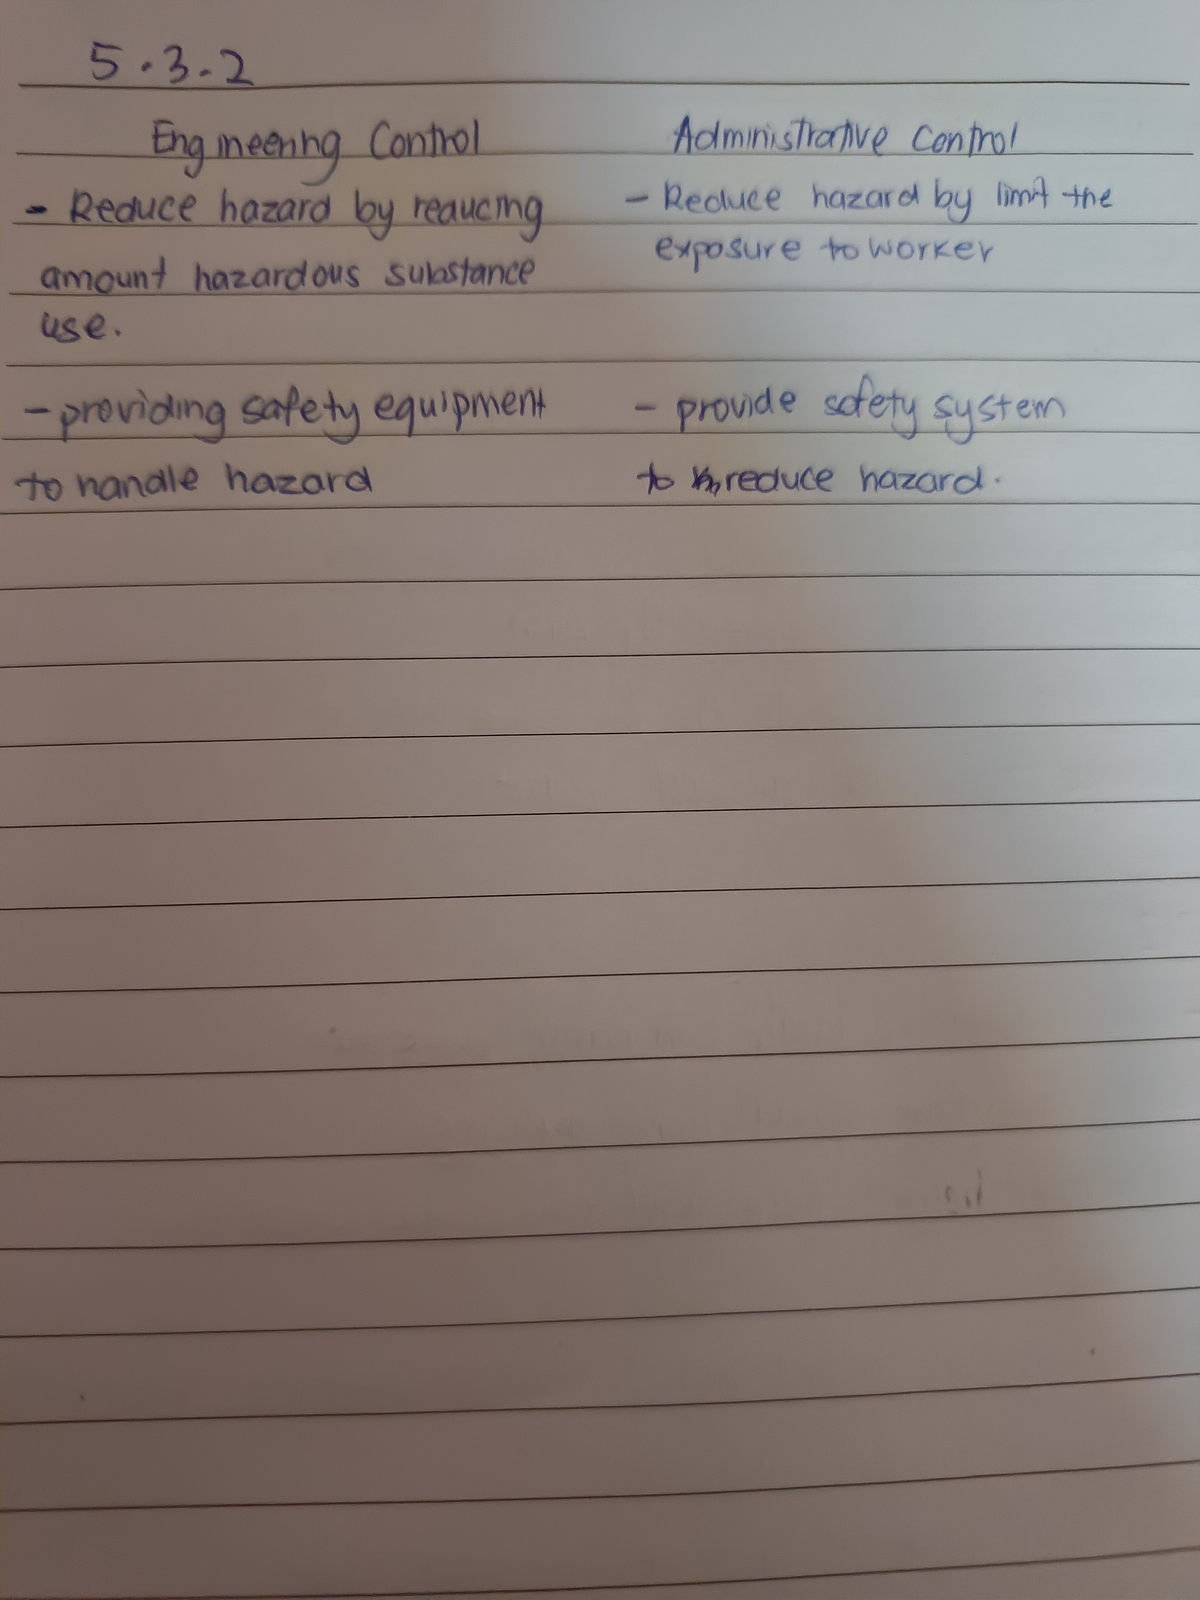 5.3.2
Engineering Control
- Reduce hazard by reducing
amount hazardous substance
use.
- providing safety equipment
to handle hazard
Administrative control
- Reduce hazard by limit the
exposure to worker
- provide safety system
to reduce hazard.